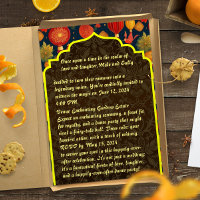 Once upon a time in the realm of
love and laughter, Mike and Cally
decided to turn their romance into a
legendary union. You're cordially invited to
witness the magic on June 12, 2024
4:00 PM.
Venue Enchanting Gardens Estate
Expect an enchanting ceremony, a feast fit
for royalty, and a dance party that might
rival a fairy-tale ball. Dress code: your
fanciest attire, with a touch of whimsy.
RSVP by May 15, 2024
to secure your spot in this happily-ever-
after celebration. It's not just a wedding;
it's a fantastical fiesta of love, laughter,
and a happily-ever-after dance party!